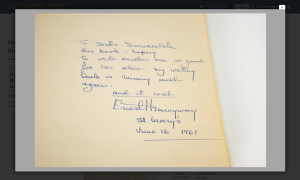 To Sister Immaculata
this book, hoping
to write another one as good
for her when my writing
luck is running well
again.
and it will
Ernest Hemingway
St. Mary's
June 16 1961